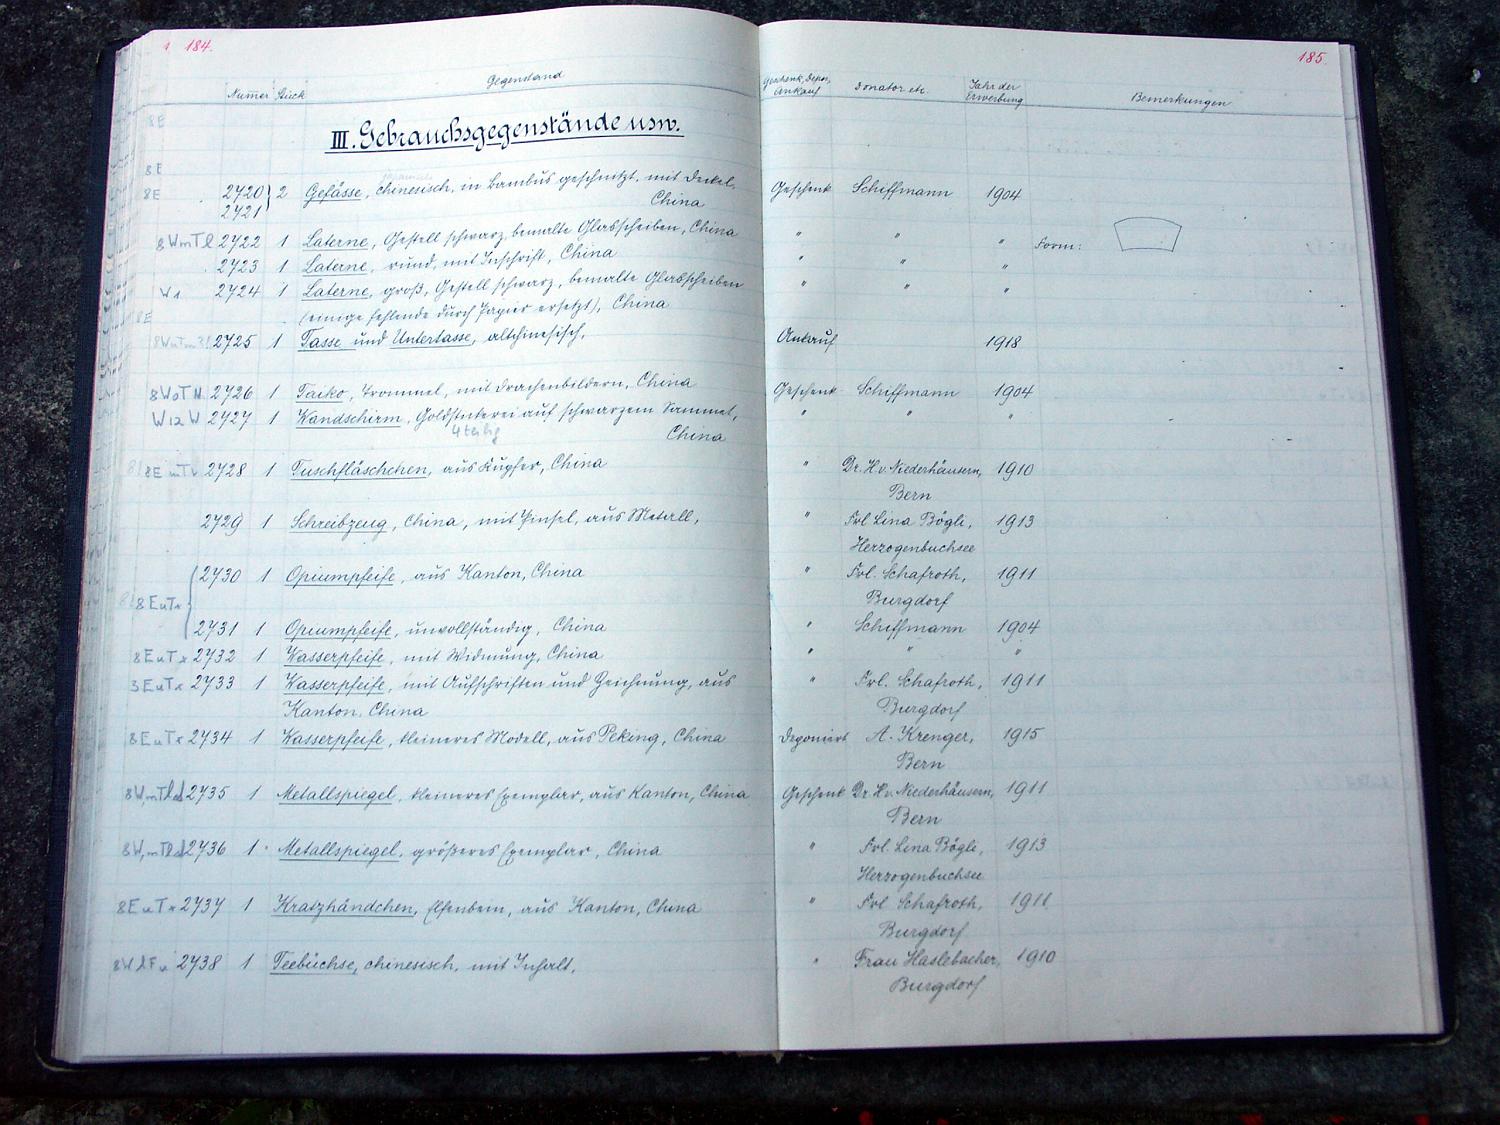 184.
185.
Nummer Stück Gegenstand Geschenk, Depos, Ankauf Donator etc. Jahr der Erwerbung Bemerkungen
8E
III. Gebrauchsgegenstände usw.
8E
8E 2720 2 Gefässe, chinesisch, in Bambus geschnitzt, mit Deckel, Geschenk Schiffmann 1904
2721 China
8WmTl 2722 1 Laterne, Gestell schwarz, bemalte Glasscheiben, China " " " Form:
2723 1 Laterne, rund, mit Inschrift, China " " "
W1 2724 1 Laterne, groß, Gestell schwarz, bemalte Glasscheiben " " "
8E (einige fehlende durch Papier ersetzt), China
2725 1 Tasse und Untertasse, altchinesisch, Ankauf 1918
2726 1 Taiko, Trommel, mit Drachenbildern, China Geschenk Schiffmann 1904
W12W 2727 1 Wandschirm, Goldstickerei auf schwarzem Sammet, " " "
4teilig China
2728 1 Tuschfläschchen, aus Kupfer, China " Dr. H. v. Niederhäusern, 1910
Bern
2729 1 Schreibzeug, China, mit Pinsel, aus Metall, " Frl Lina Bögli, 1913
Herzogenbuchsee
2730 1 Opiumpfeife, aus Kanton, China " Frl. Schafroth, 1911
8EuTr Burgdorf
2731 1 Opiumpfeife, unvollständig, China " Schiffmann 1904
8EuTr 2732 1 Wasserpfeife, mit Widmung, China " " "
8EuTr 2733 1 Wasserpfeife, mit Aufschriften und Zeichnung, aus " Frl. Schafroth, 1911
Kanton, China Burgdorf
8EuTr 2734 1 Wasserpfeife, kleineres Modell, aus Peking, China Deponiert A. Krenger, 1915
Bern
2735 1 Metallspiegel, kleineres Exemplar, aus Kanton, China Geschenk Dr. H. v. Niederhäusern, 1911
Bern
2736 1 Metallspiegel, größeres Exemplar, China " Frl. Lina Bögli, 1913
Herzogenbuchsee
8EuTr 2737 1 Kratzhändchen, Elfenbein, aus Kanton, China " Frl Schafroth, 1911
Burgdorf
2738 1 Teebüchse, chinesisch, mit Inhalt, " Frau Haslebacher, 1910
Burgdorf